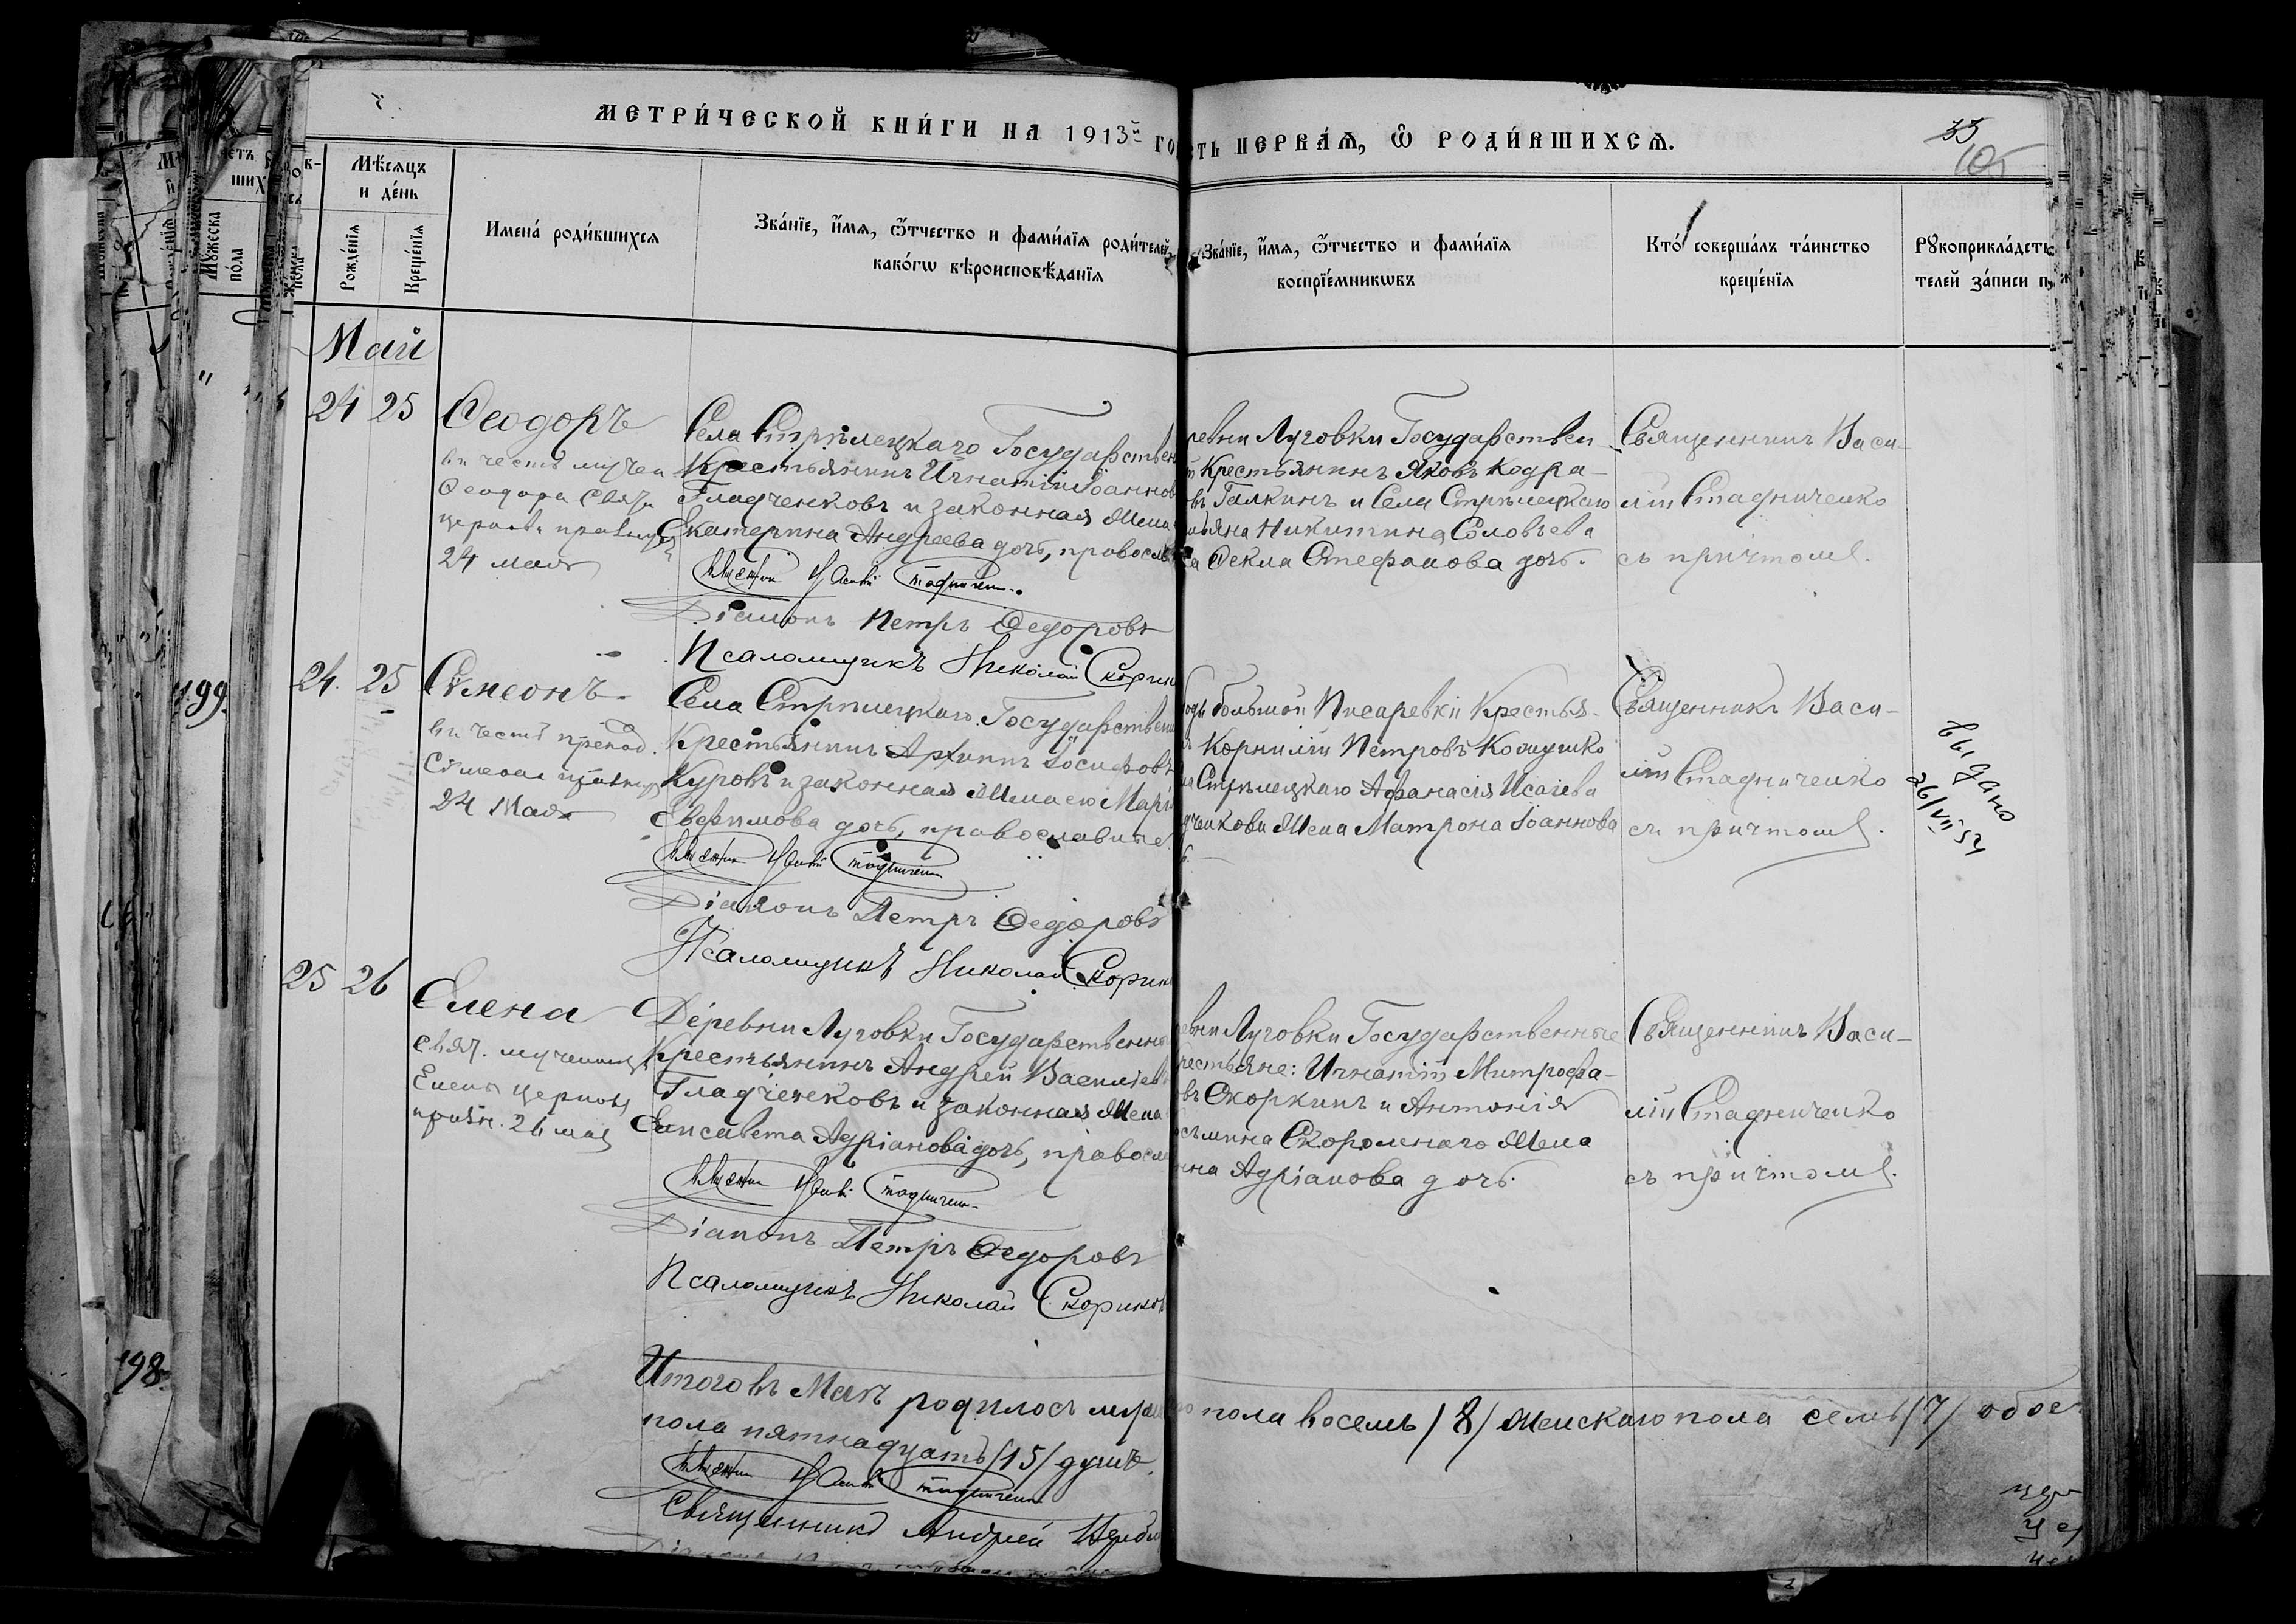 МЕТРИ́ЧЕСКОЙ КНИ́ГИ НА 1913й ГО
СТЬ ПЕРВА́Я, Ѡ РОДИ́ВШИХСЯ.
33
105
Мѣ́сяцъ
и де́нь
Рожде́нїя
Креще́нїя
Имена́ роди́вшихся
Зва́нїе, и҆́мя, ѻ҆́тчество и фами́лїя роди́телей,
како́гѡ вѣроисповѣ́данїя
Зва́нїе, и҆́мя, ѻ҆́тчество и фами́лїя
воспрїе́мникѡвъ
Кто̀ соверша́лъ та́инство
креще́нїя
Рꙋкоприкла́дств
телей за́писи п
Май
24 25
Ѳеодоръ
въ честь мучен
Ѳеодора
церковь
24 мая
Села Стрѣлецкаго Государствен
Крестьянинъ Игнатій Іоаннов
Гладченковъ и законная жена
Екатерина Андреева дочь, правосл
Діаконъ Петръ Ѳедоровъ
Псаломщикъ Николай Скорик
ревни Луговки Государствен
Крестьянинъ Яковъ Кодра-
овъ Галкинъ и Села Стрѣлецкаго
Никитина Соловьева
а Ѳекла Стефанова дочь.
Священникъ Васи-
лій Стадниченко
съ причтомъ.
199
24. 25
Сѵмеонъ
въ честь препод.
Сѵмеона
24 Мая
Села Стрѣлецкаго Государствен
Крестьянинъ Архипъ Іосифовъ
Куровъ и законная жена его Марі
Евфимова дочь, православные
Діаконъ Петръ Ѳедоровъ
Псаломщикъ Николай Скорик
оды Большой Писаревки Крестья-
Корнилій Петровъ
Стрѣлецкаго Афанасія Исаіева
дченкова жена Матрона Іоаннова
Священникъ Васи-
лій Стадниченко
съ причтомъ.
Выдано
26/VII 54
25 26
Елена
свят. мученицы
Елены церковь
праздн. 26 мая
Деревни Луговки Государственны
Крестьянинъ Андрей Василіев
Гладченковъ и законная жена
Елисавета Адріанова дочь, правосл
Діаконъ Петръ Ѳедоровъ
Псаломщикъ Николай Скориков
евни Луговки Государственные
рестьяне: Игнатій Митрофа-
овъ Скоркинъ и Антонія
жена
нна Адріанова дочь.
Священникъ Васи-
лій Стадниченко
съ причтомъ.
198
Итого въ Маѣ родилось муж
пола восемь /8/ женскаго пола семь /7/ обое
пола пятнадцать /15/ душъ.
Священникъ Андрей